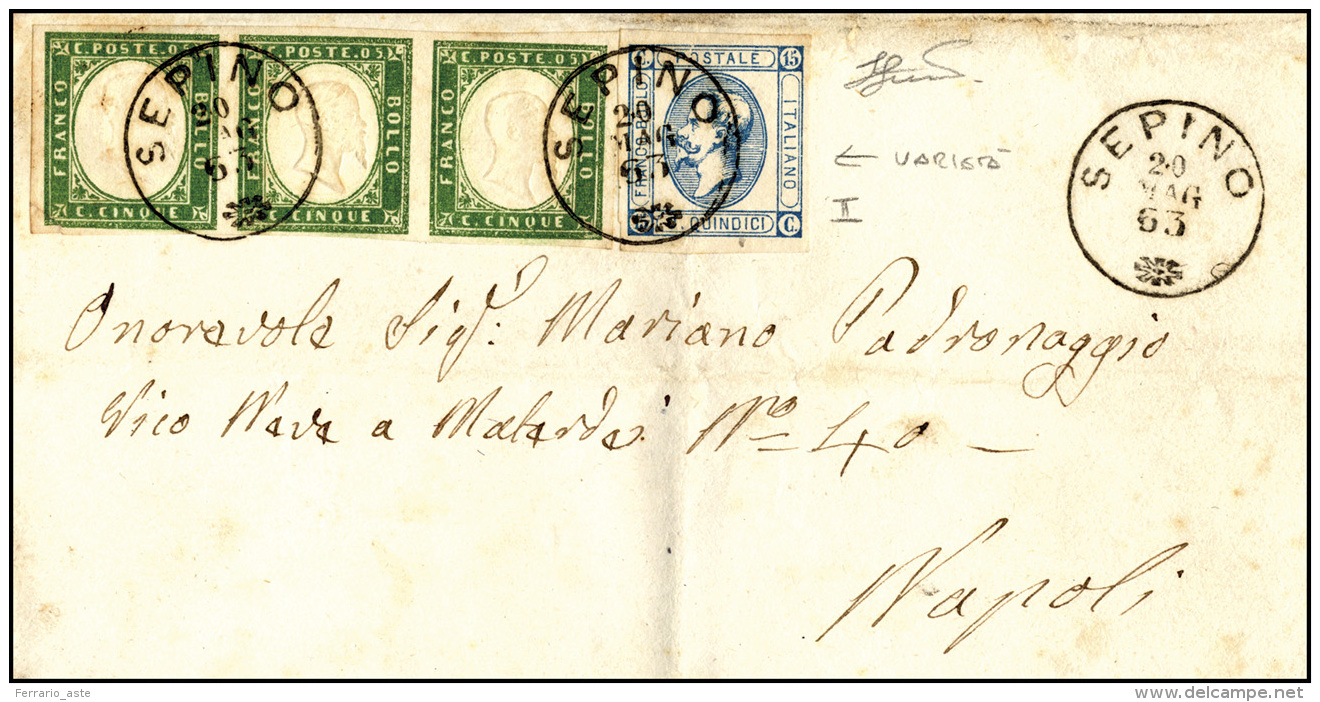 C. POSTE. 05 C. POSTE. 05 C. POSTE. 05
FRANCO BOLLO FRANCO BOLLO FRANCO BOLLO
C. CINQUE C. CINQUE C. CINQUE
C. POSTALE 15
FRANCO BOLLO ITALIANO
C. QUINDICI C.
SEPINO
20
MAG
63
SEPINO
20
MAG
63
← VARIETÀ
II
SEPINO
20
MAG
63
Onorevole Sigr: Mariano Padronaggio
Vico Neve a Materdei No 40 —
Napoli
Ferrario_aste
www.delcampe.net